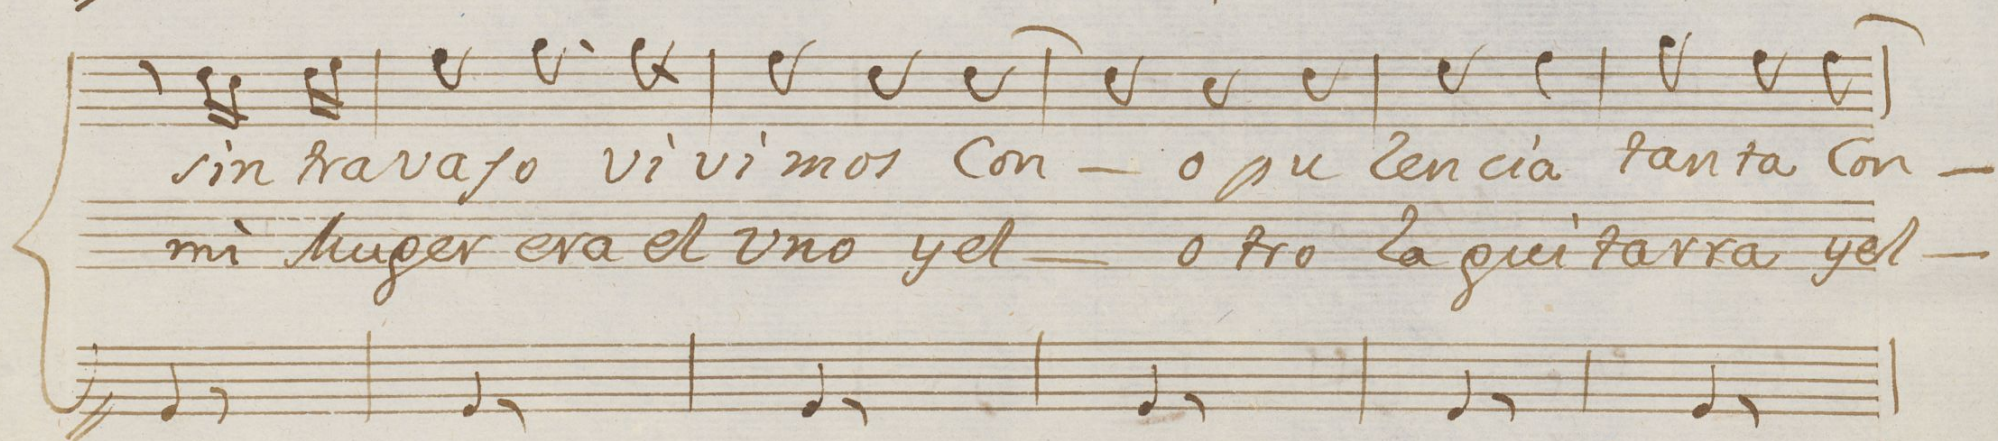 sin travajo vivimos Con — opulencia tanta Con —
mi Muger era el vno y el — otro la guitarra y el —